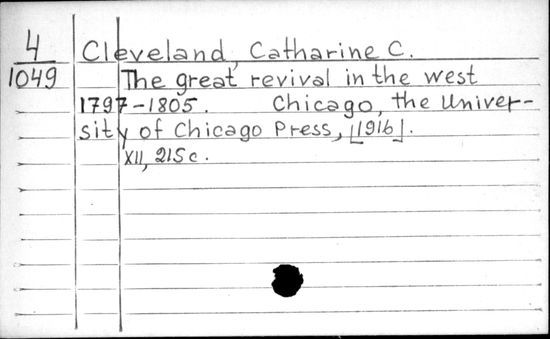 4
1049
Cleveland, Catharine C.
The great revival in the west
1797-1805. Chicago, the Univer-
sity of Chicago Press, [1916].
XII, 215 c.